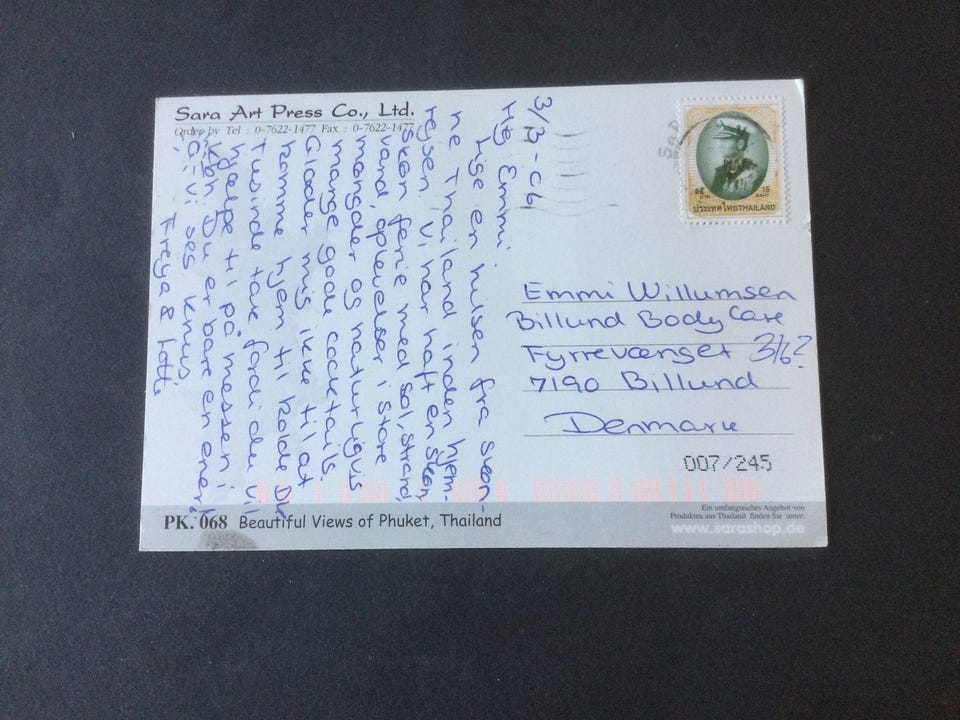 Sara Art Press Co., Ltd.
Order by Tel : 0-7622-1477 Fax : 0-7622-1477
3/3-06
Hej Emmi
Lige en hilsen fra skøn-
ne Thailand inden hjem-
rejsen. Vi har haft en skøn,
skøn ferie med sol, strand
vand, oplevelser i store
mængder og naturligvis
mange gode cocktails.
Glæder mig ikke til at
komme hjem til kolde DK
Tusinde tak fordi du vil
hjælpe til på messen i
Du er bare en ener!
vi ses knus
Freya & Lotti
๑๕ 15
บาท BAHT
ประเทศไทย THAILAND
Emmi Willumsen
Billund Body Care
Fyrrevænget 3/6?
7190 Billund
Denmark
007/245
PK. 068 Beautiful Views of Phuket, Thailand
Ein umfangreiches Angebot von
Produkten aus Thailand finden Sie unter:
www.sarashop.de